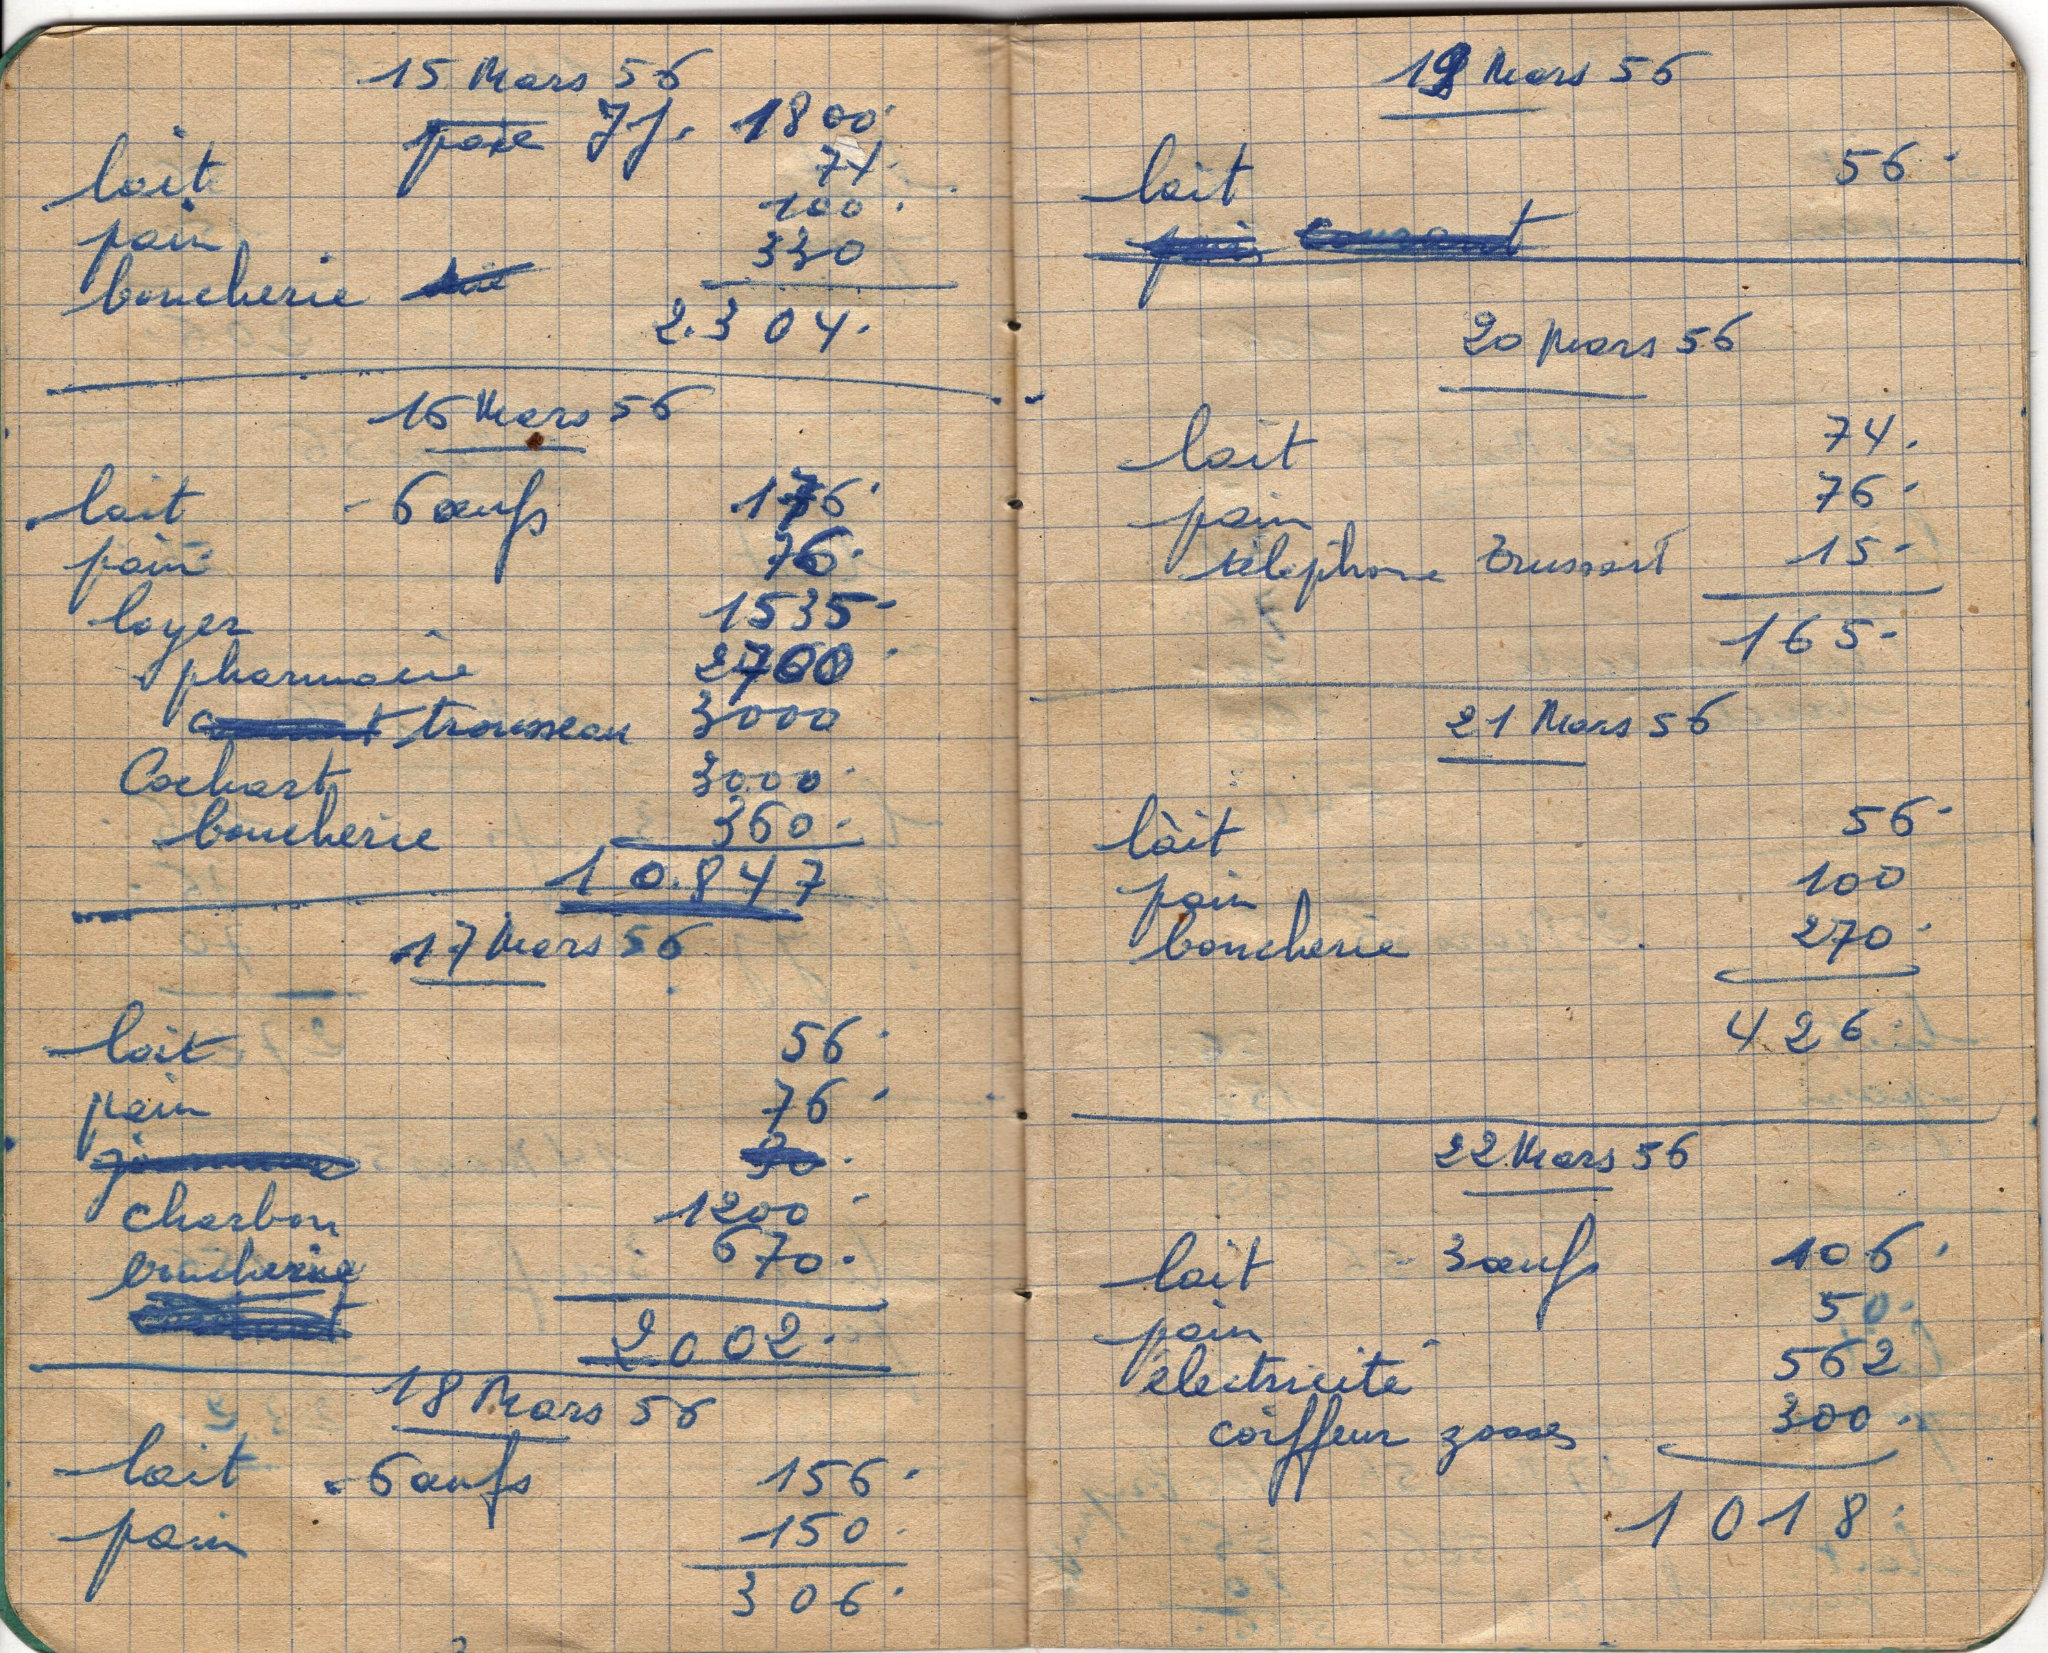 15 Mars 56
paie 7 j. 1800
lait 74.
pain 100.
boucherie 330
2.304.
16 Mars 56
lait - 6 œufs 176.
pain 76.
loyer 1535-
pharmacie 2700
trousseau 3000
Cochart 3000.
boucherie 360.
10.847
17 Mars 56
lait 56.
pain 76.
30.
charbon 1200
boucherie 670.
2002.
18 Mars 56
lait - 6 œufs 156.
pain 150.
306.
19 Mars 56
lait 56.
pain courant
20 Mars 56
lait 74.
pain 76.
téléphone 15-
165-
21 Mars 56
lait 56.
pain 100
boucherie 270.
426.
22 Mars 56
lait - 3 œufs 106.
pain 50.
électricité 562
coiffeur gosses 300.
1018.